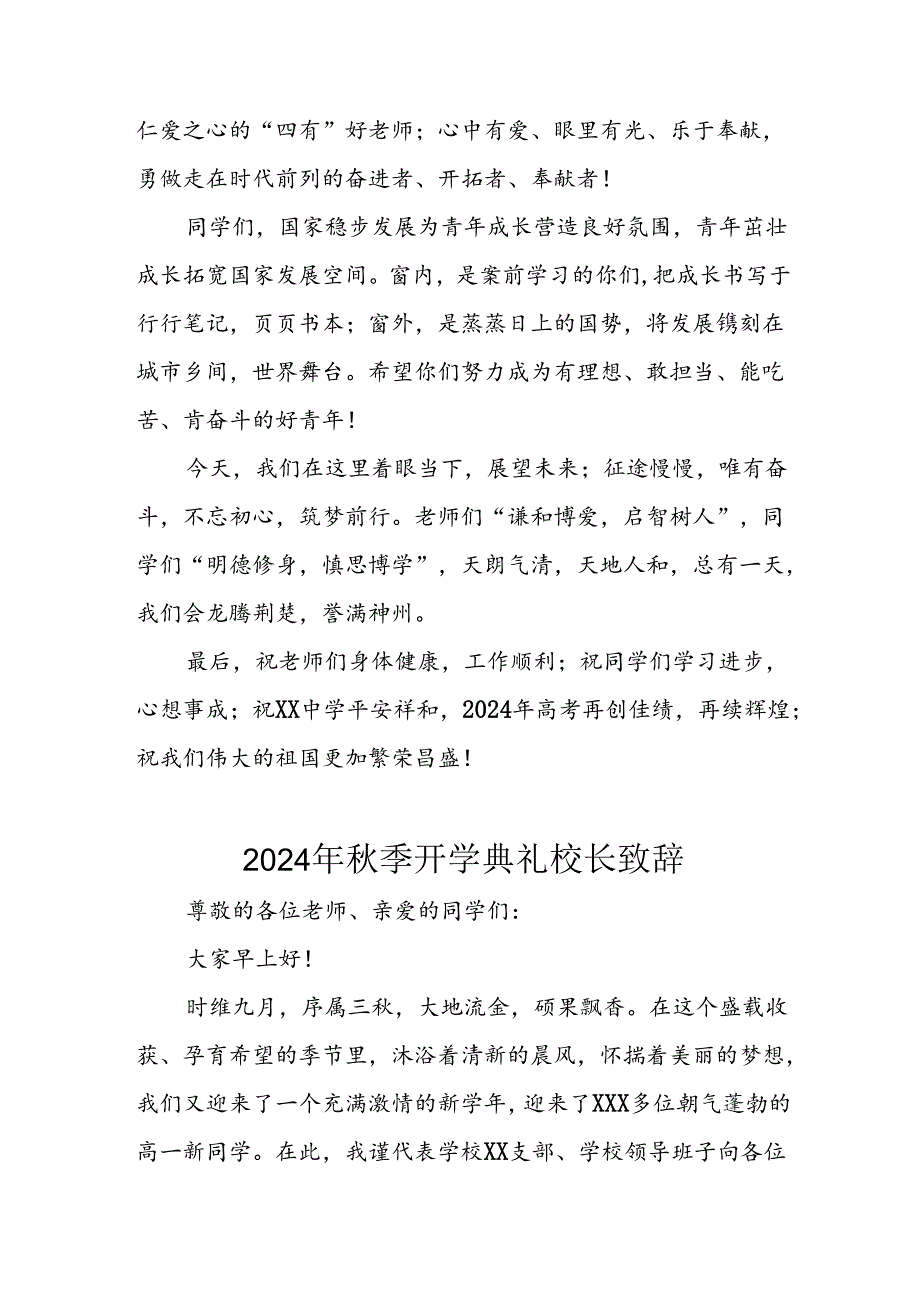 仁爱之心的“四有”好老师；心中有爱、眼里有光、乐于奉献，
勇做走在时代前列的奋进者、开拓者、奉献者！
同学们，国家稳步发展为青年成长营造良好氛围，青年茁壮
成长拓宽国家发展空间。窗内，是案前学习的你们,把成长书写于
行行笔记，页页书本；窗外，是蒸蒸日上的国势，将发展镌刻在
城市乡间，世界舞台。希望你们努力成为有理想、敢担当、能吃
苦、肯奋斗的好青年！
今天，我们在这里着眼当下，展望未来；征途慢慢，唯有奋
斗，不忘初心，筑梦前行。老师们“谦和博爱，启智树人”，同
学们“明德修身，慎思博学”，天朗气清，天地人和，总有一天，
我们会龙腾荆楚，誉满神州。
最后，祝老师们身体健康，工作顺利；祝同学们学习进步，
心想事成；祝XX中学平安祥和，2024年高考再创佳绩，再续辉煌；
祝我们伟大的祖国更加繁荣昌盛！
2024年秋季开学典礼校长致辞
尊敬的各位老师、亲爱的同学们：
大家早上好！
时维九月，序属三秋，大地流金，硕果飘香。在这个盛载收
获、孕育希望的季节里，沐浴着清新的晨风，怀揣着美丽的梦想，
我们又迎来了一个充满激情的新学年,迎来了XXX多位朝气蓬勃的
高一新同学。在此，我谨代表学校XX支部、学校领导班子向各位